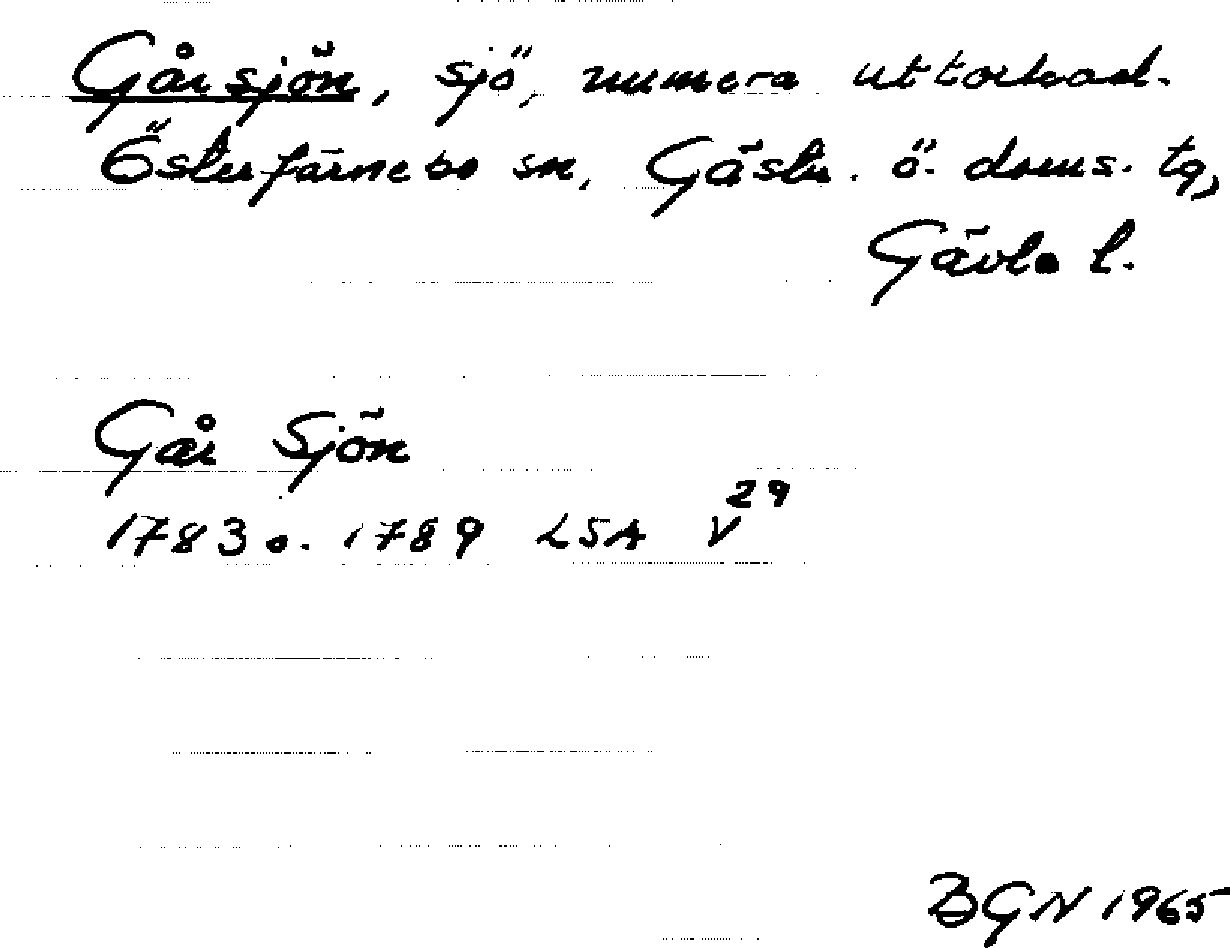 Gårsjön, sjö, numera uttorkad.
Österfärnebo sn, Gästr. ö. doms. tg,
Gävle l.
Går Sjön
1783 o. 1789 LSA V29
BGN 1965